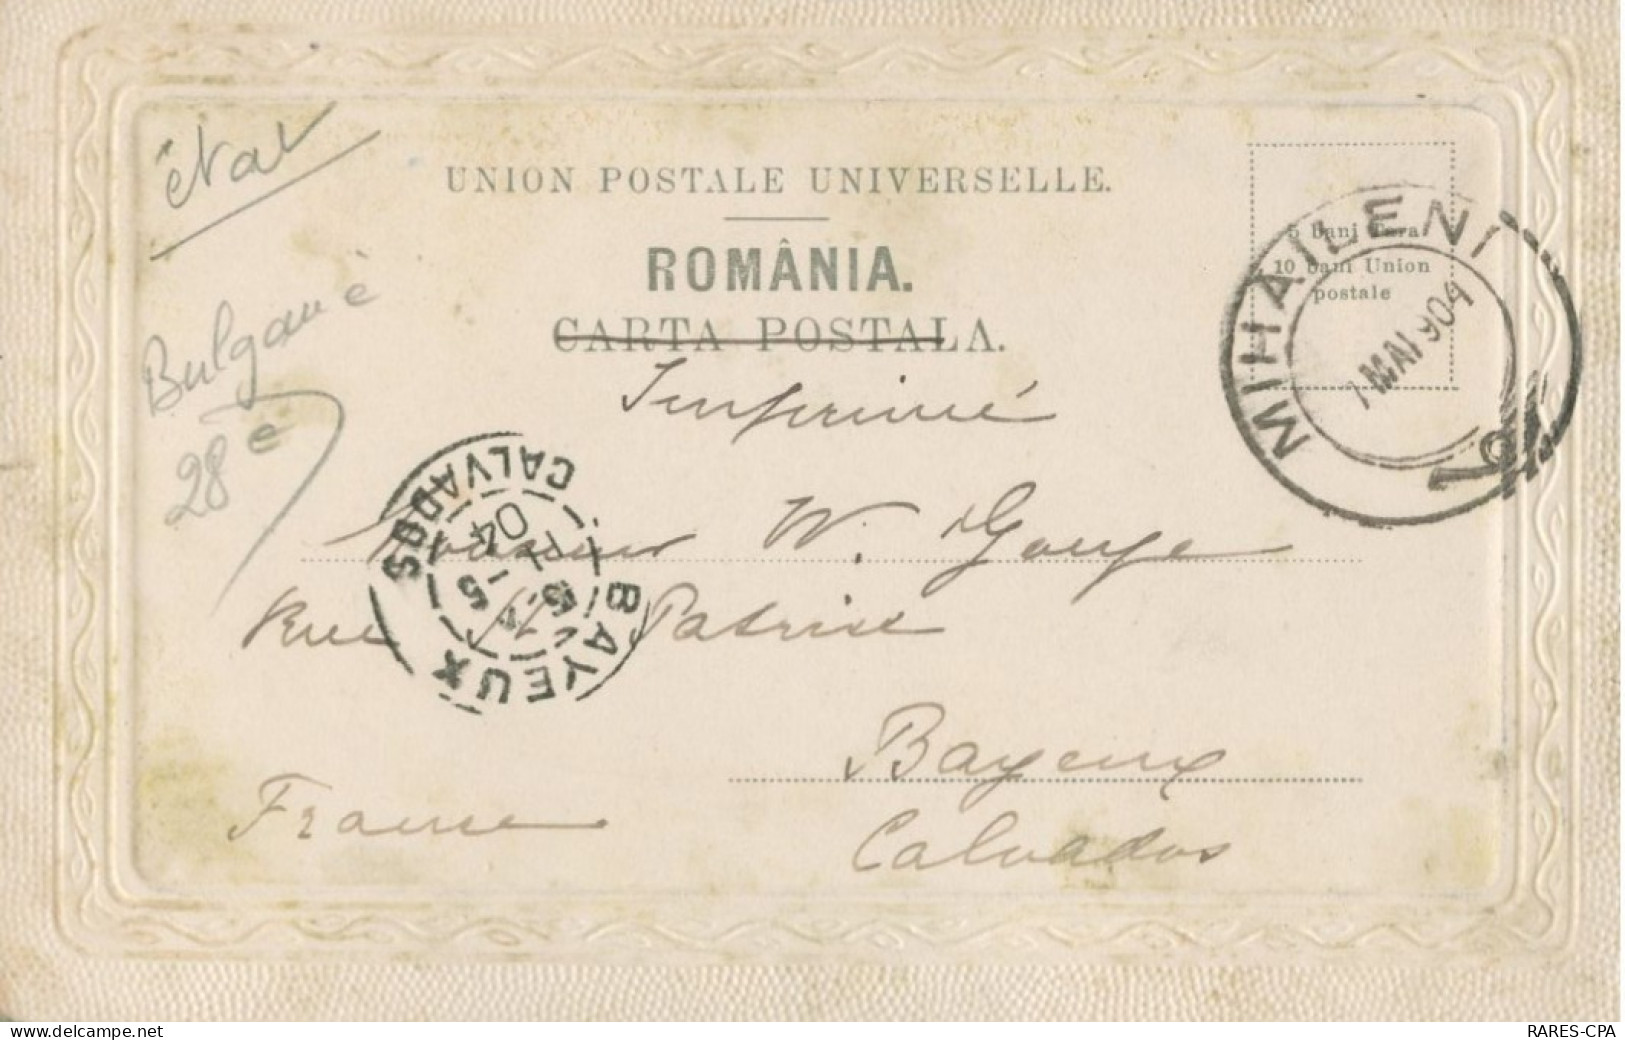 état
UNION POSTALE UNIVERSELLE.
ROMÂNIA.
CARTA POSTALA.
5 bani Țara
10 bani Union
postale
MIHAILENI
1 MAI 904
Bulgarie
28 e
Imprimé
BAYEUX
CALVADOS
5 -5
04
Monsieur W. Gouye
Rue St Patrice
Bayeux
France
Calvados
www.delcampe.net
RARES-CPA